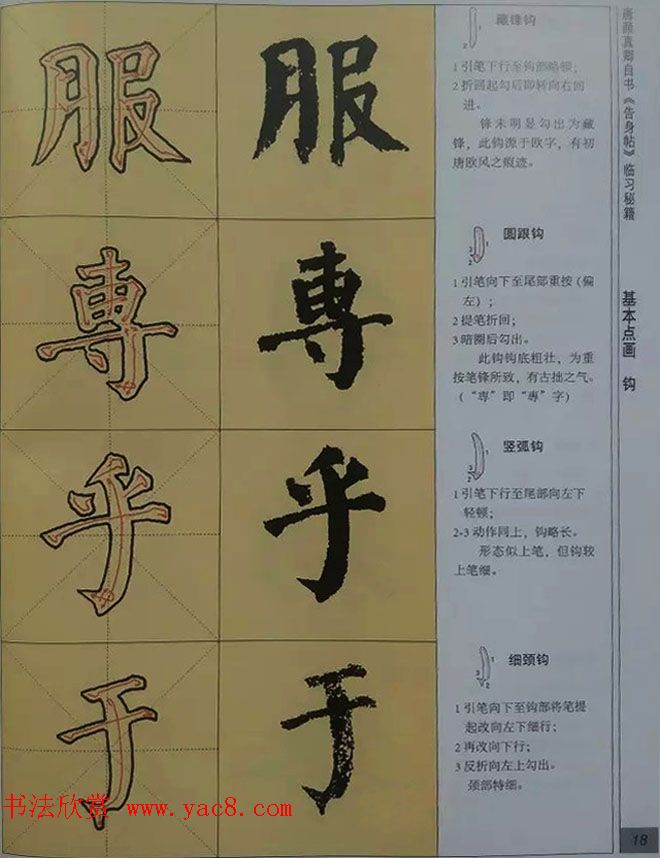 服 服
藏锋钩
1 引笔下行至钩部略顿；
2 折回起勾后即转向右回
进。
锋未明显勾出为藏
锋，此钩源于欧字，有初
唐欧风之痕迹。
專 專
圆跟钩
1 引笔向下至尾部重按（偏
左）；
2 提笔折回；
3 暗圈后勾出。
此钩钩底粗壮，为重
按笔锋所致，有古拙之气。
（“専”即“專”字）
乎 乎
竖弧钩
1 引笔下行至尾部向左下
轻顿；
2-3 动作同上，钩略长。
形态似上笔，但钩较
上笔细。
于 于
细颈钩
1 引笔向下至钩部将笔提
起改向左下细行；
2 再改向下行；
3 反折向左上勾出。
颈部特细。
唐颜真卿自书《告身帖》临习秘籍
基本点画 钩
18
书法欣赏 www.yac8.com